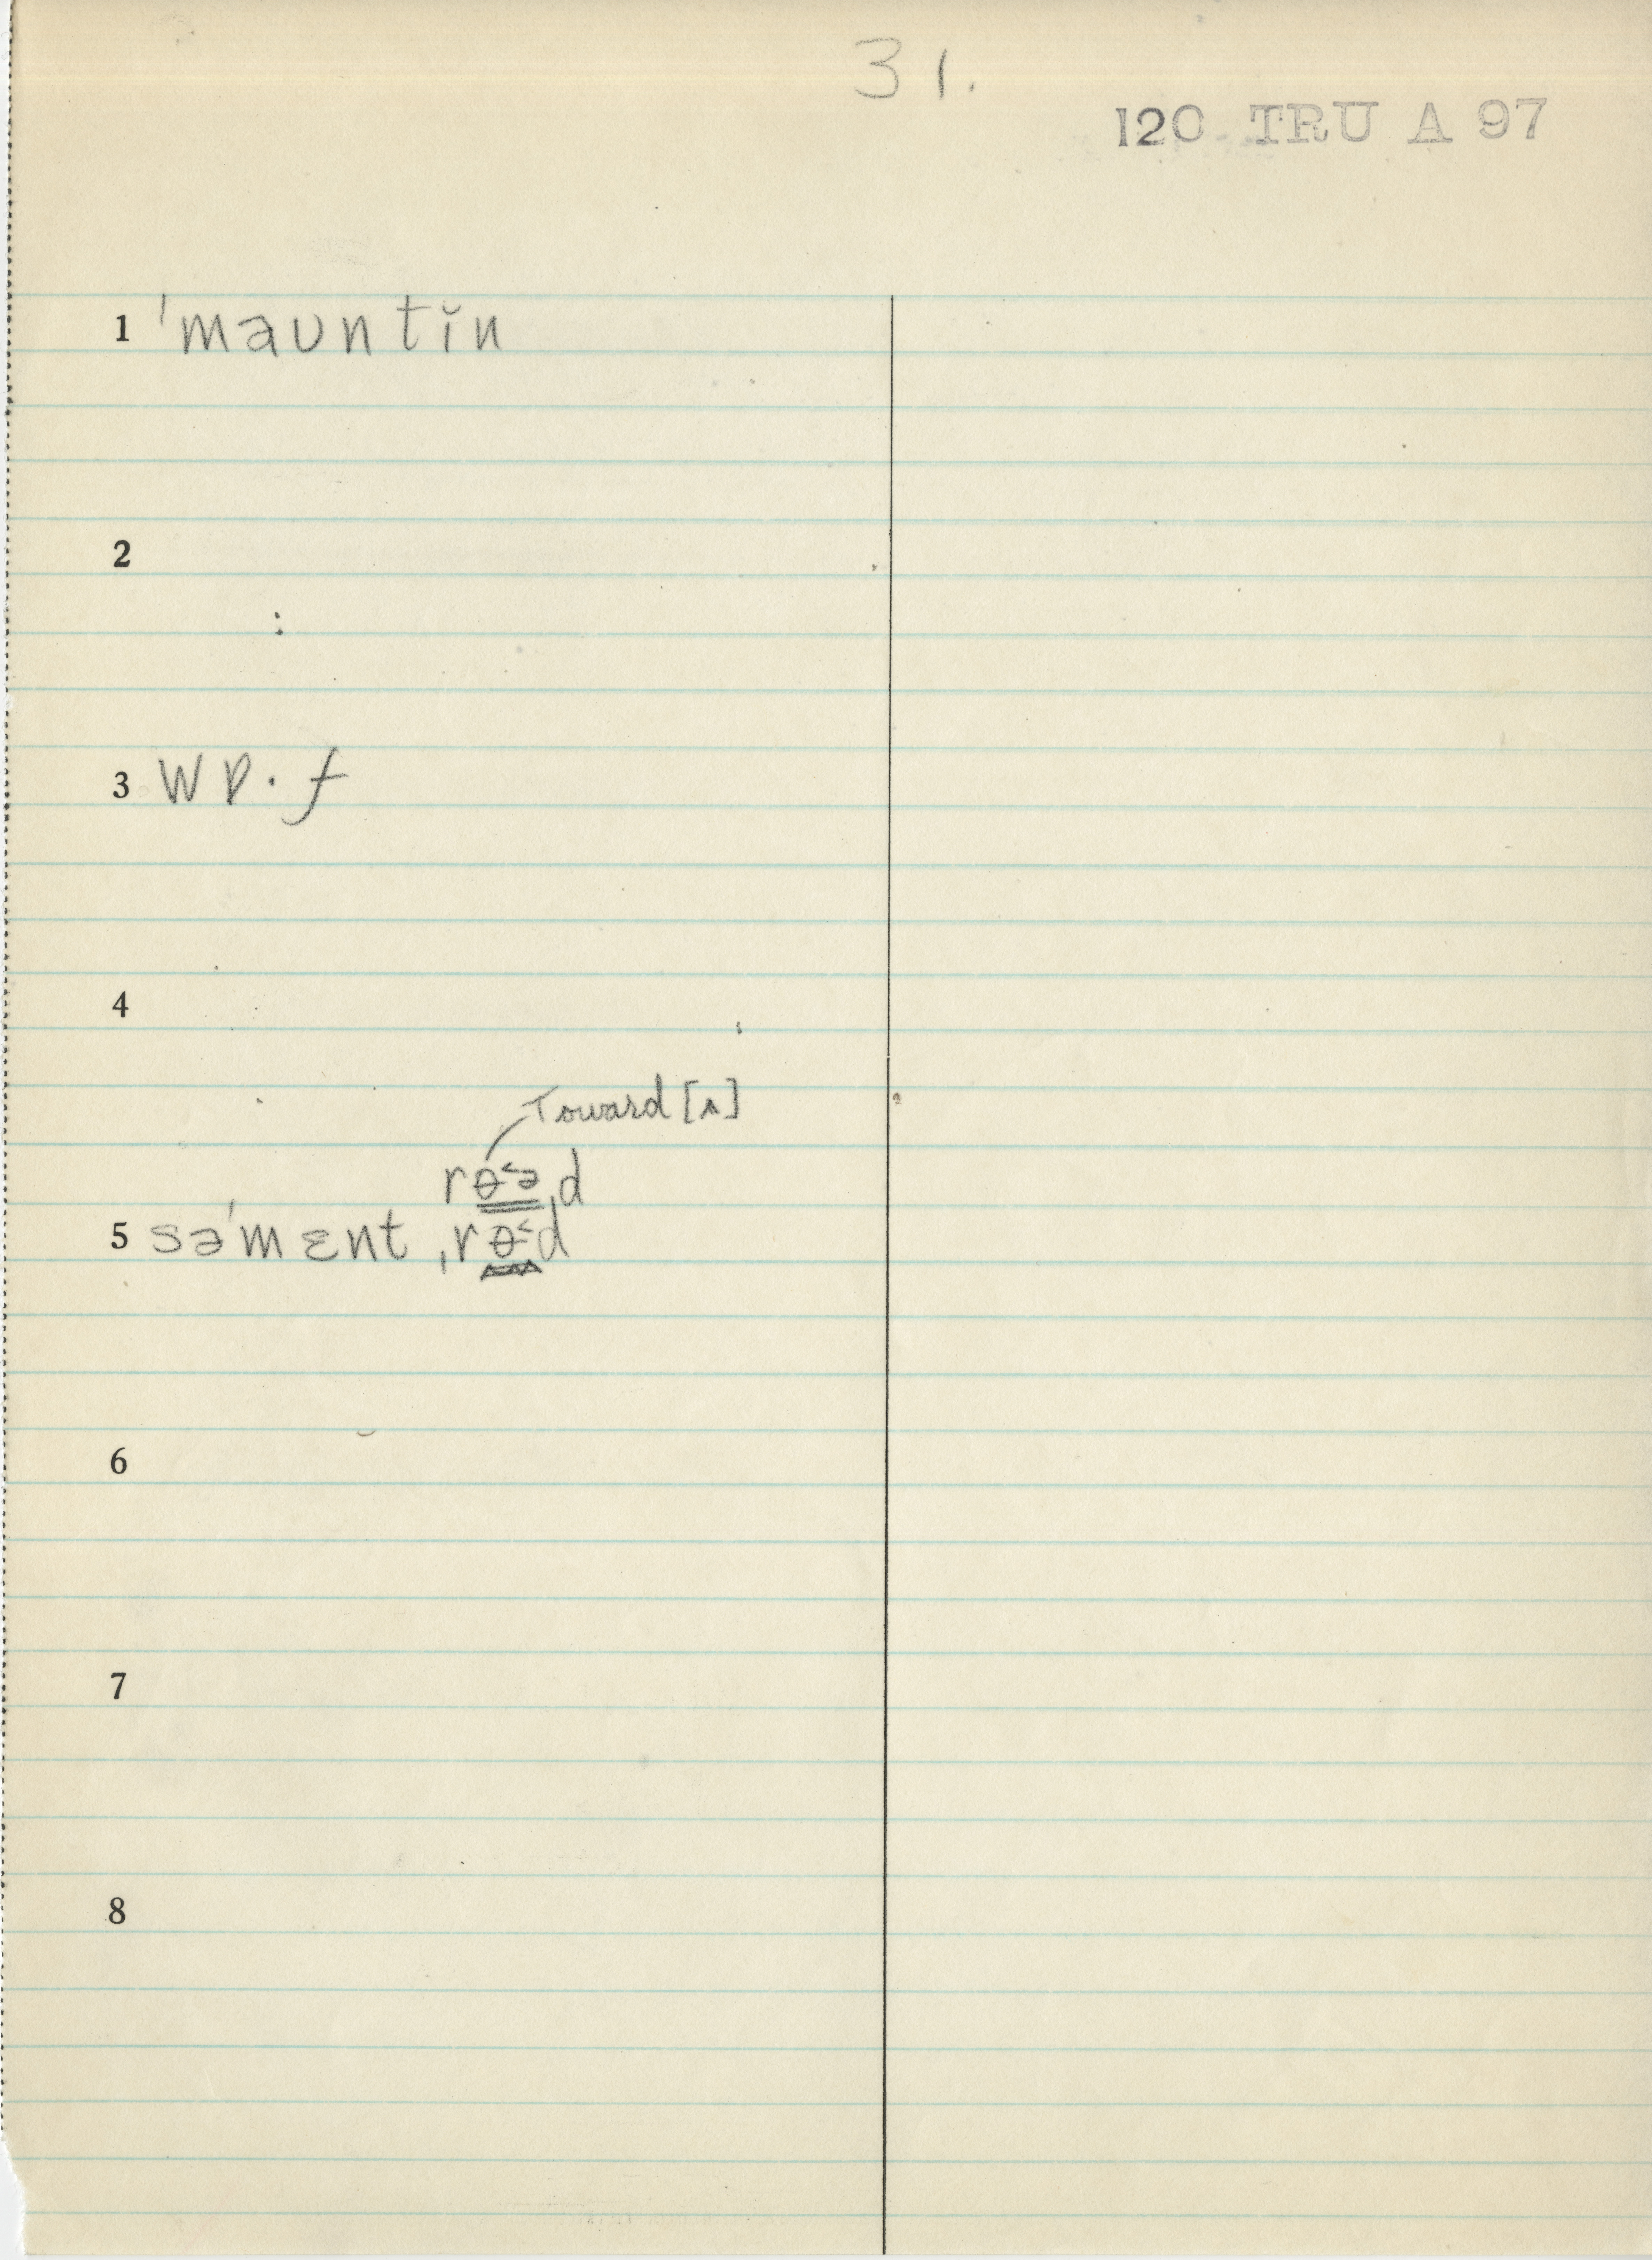 31.
120 TRU A 97
1 ˈmaʊntĭn
2
3 wɒ·f
4
Toward [ʌ]
rɵ˂əd
5 səˈmɛnt ˌrɵ˂d
6
7
8